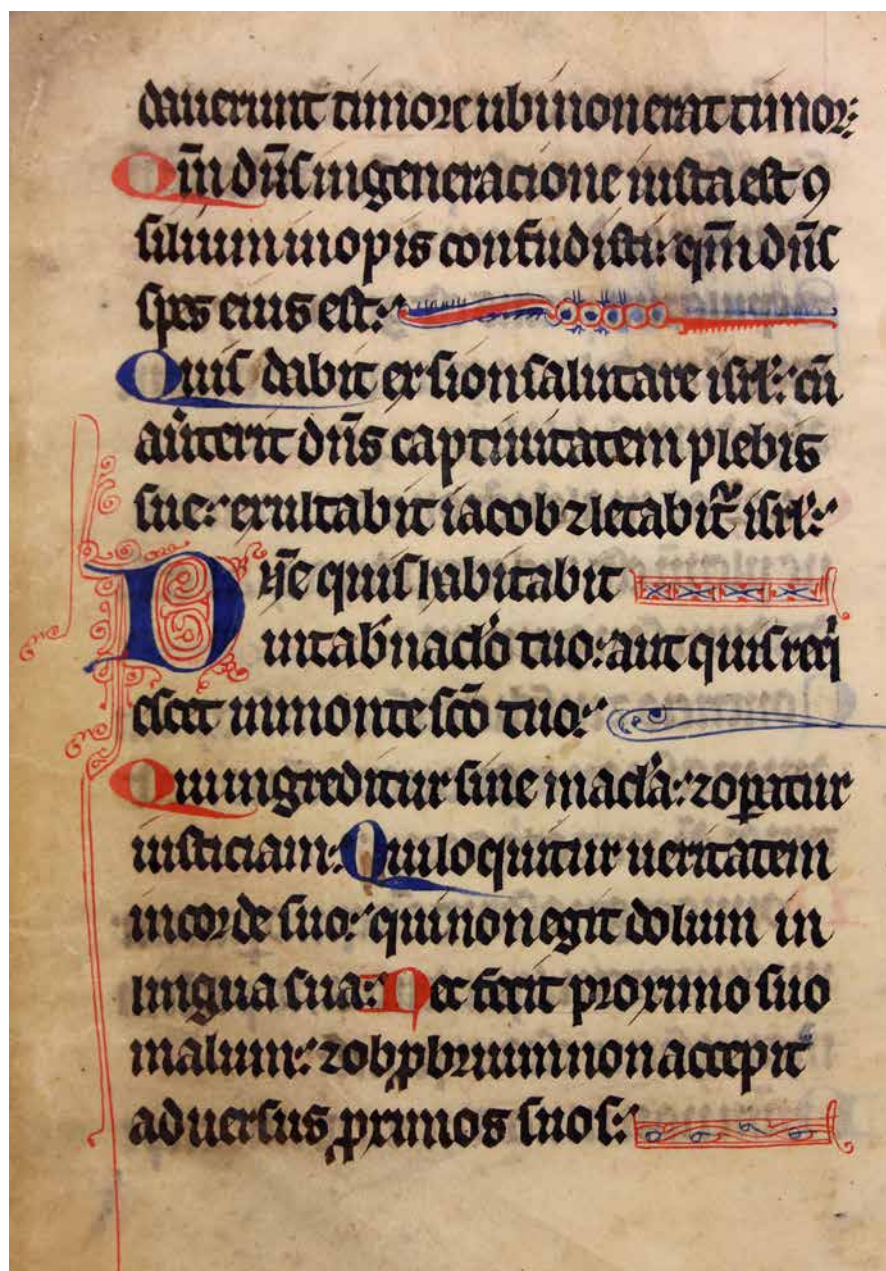 dauerunt timore ubi non erat timor:
Qm̄ dn̄s in generacione iusta est ꝯ
silium inopis confudisti: qm̄ dn̄s
spes eius est:
Quis dabit ex sion salutare isrl̓: cū
au̓terit dn̄s captiuitatem plebis
sue: exultabit iacob ⁊ letabit᷑ isrl̓:
Dn̄e quis habitabit
in tab̓naclo̓ tuo: aut quis req̓i
escet in monte sc̄o tuo:
Qui ingreditur sine macla̓: ⁊ opatur
iusticiam: Qui loquitur ueritatem
in corde suo: qui non egit dolum in
lingua sua: Nec fecit proximo suo
malum: ⁊ obꝓbrium non accepit
aduersus ꝓximos suos: